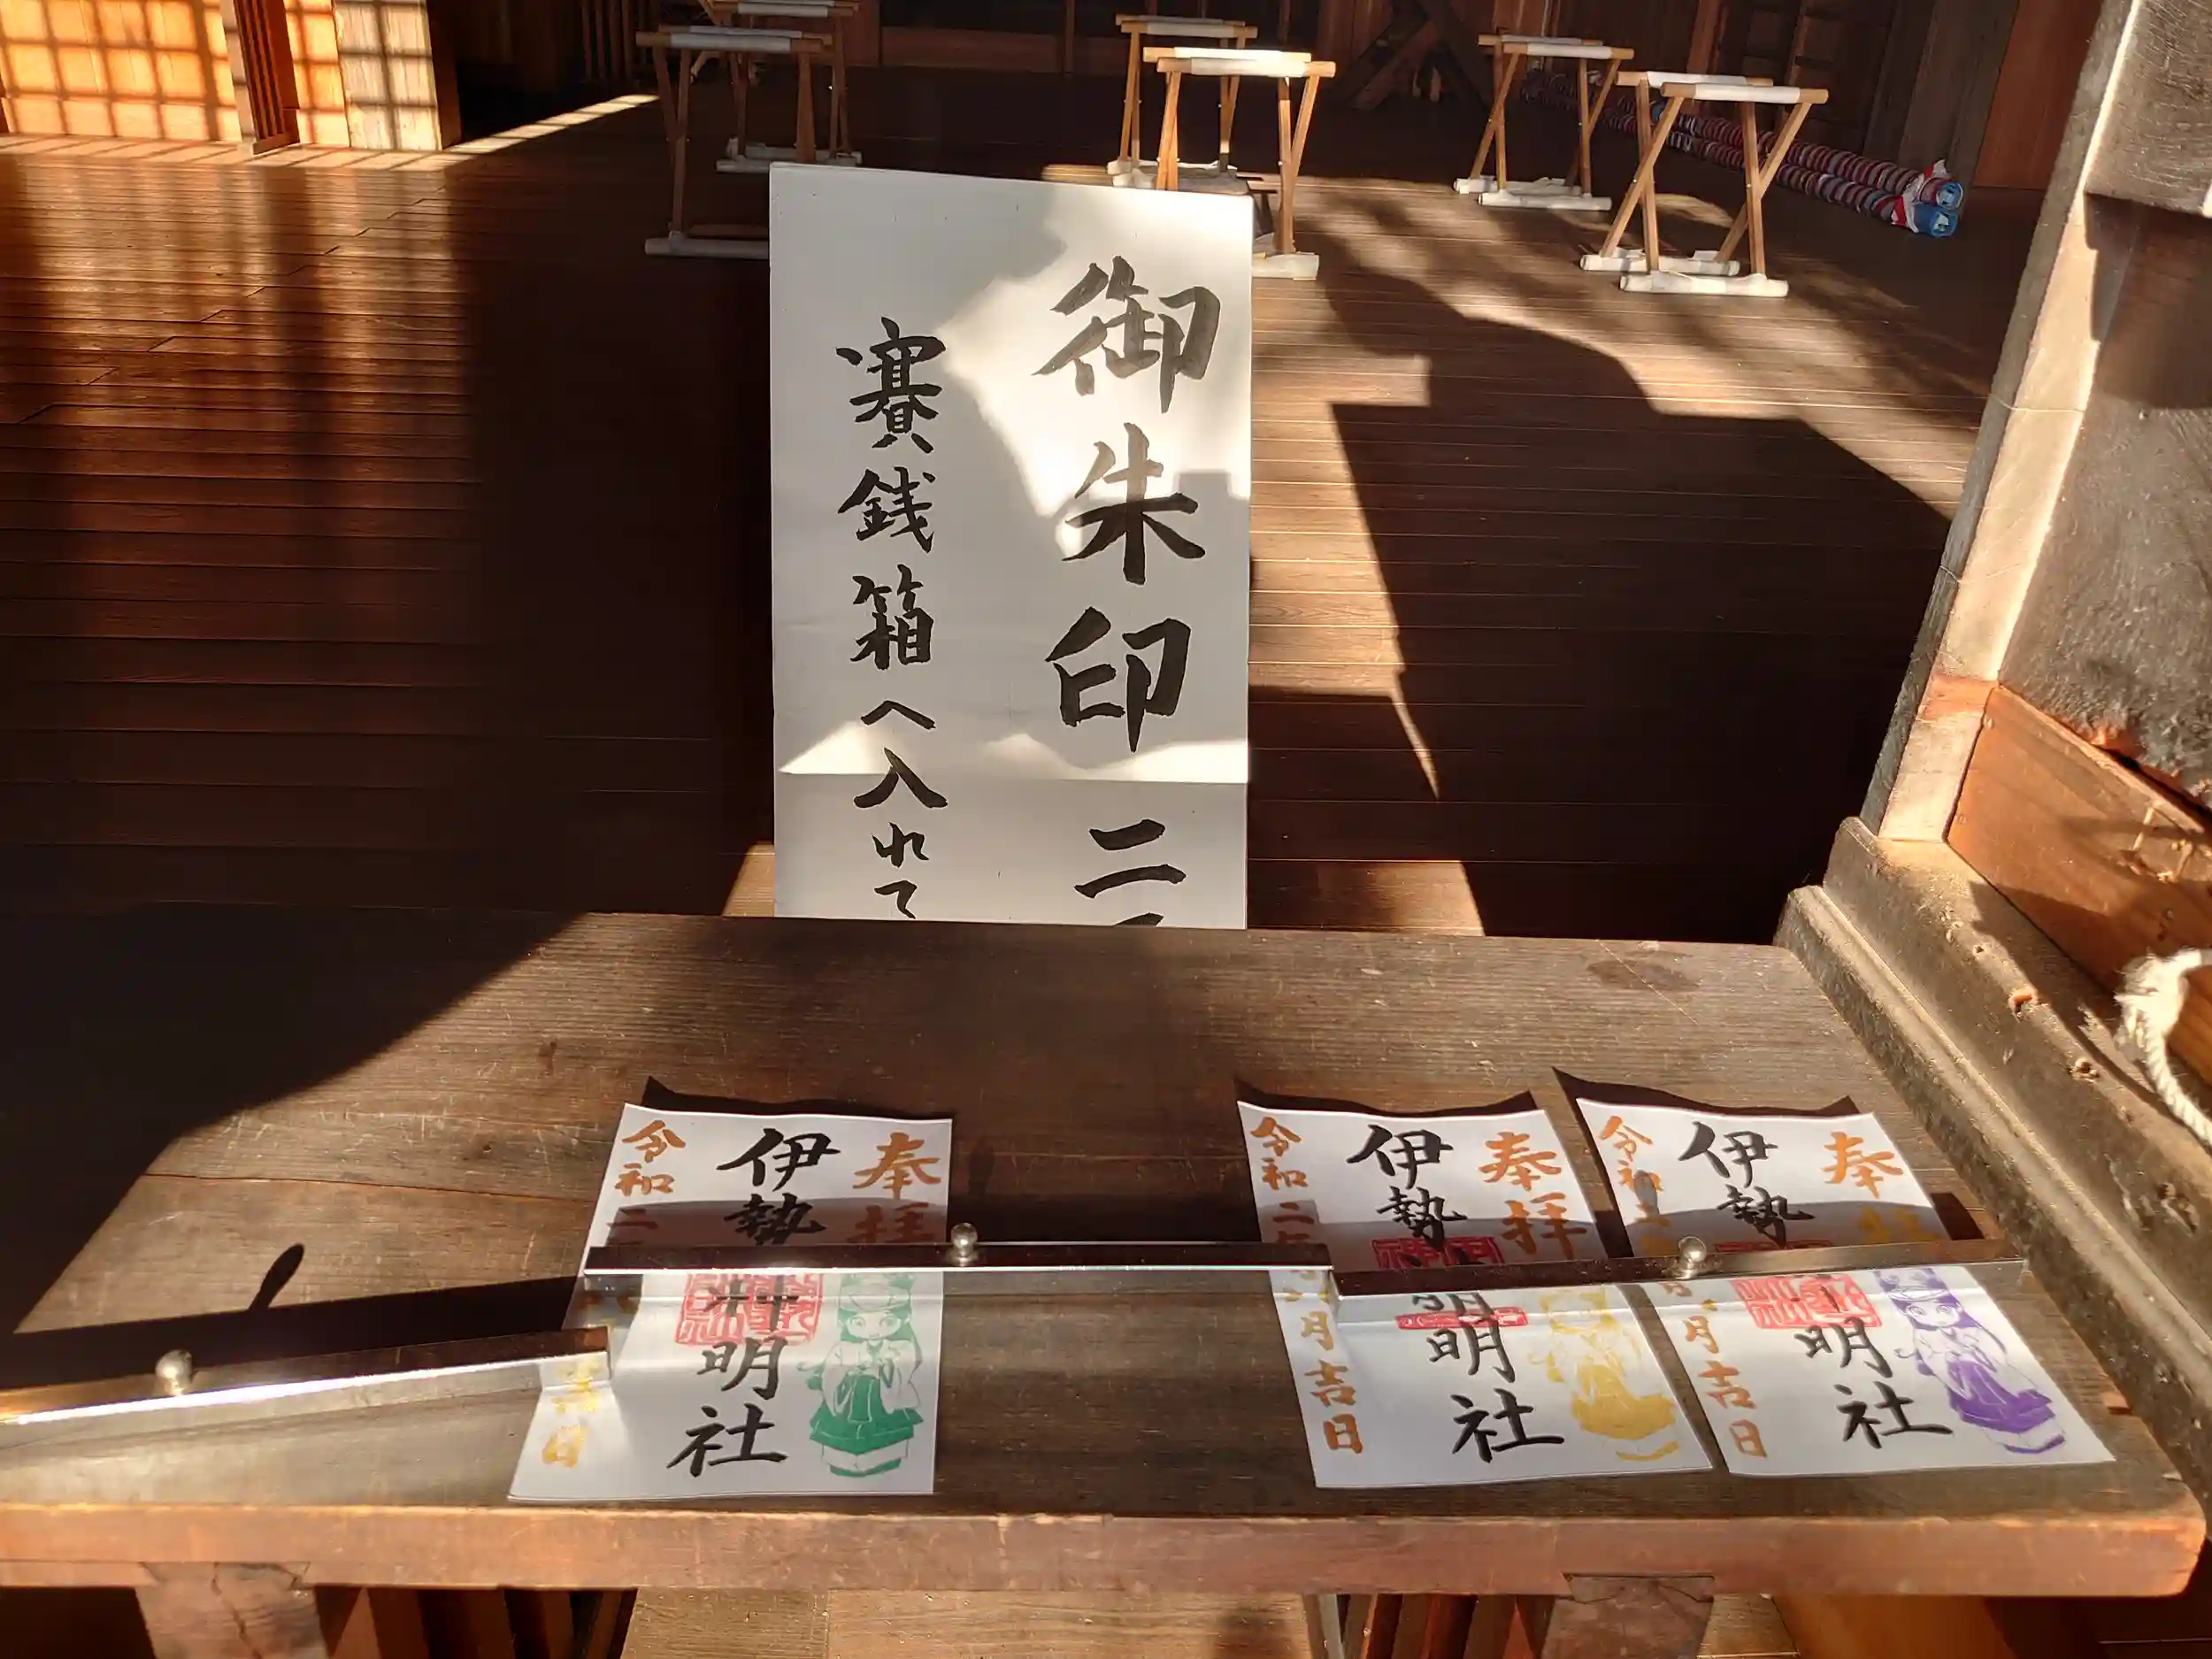 御朱印 二
賽銭箱へ入れて
奉拝
伊勢神明社
令和二
吉日
奉拝
伊勢
明社
令和二年
月吉日
奉拝
伊勢
明社
令和二
月吉日